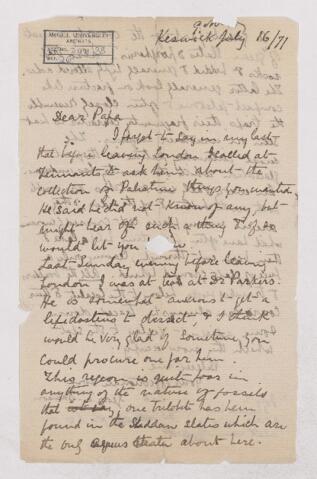 McGILL UNIVERSITY
ARCHIVES
ACC. NO.
REF.
Keswick July 16/71
Dear Papa
I forgot to say in my last
that before leaving London I called at
to ask him about the
collection of Palestine things you wanted.
He said he did not know of any, but
might hear of such a thing & if so
would let you know.
Last Sunday evening before leaving
London I was at tea at Dr Parkers.
He is somewhat anxious to get a
lepidosteus to dissect, & I think
would be very glad if sometime you
could procure one for him.
This region is quite poor in
anything of the nature of fossils
one trilobite has been
found in the Skiddaw slates which are
the only aqueous strata about here.